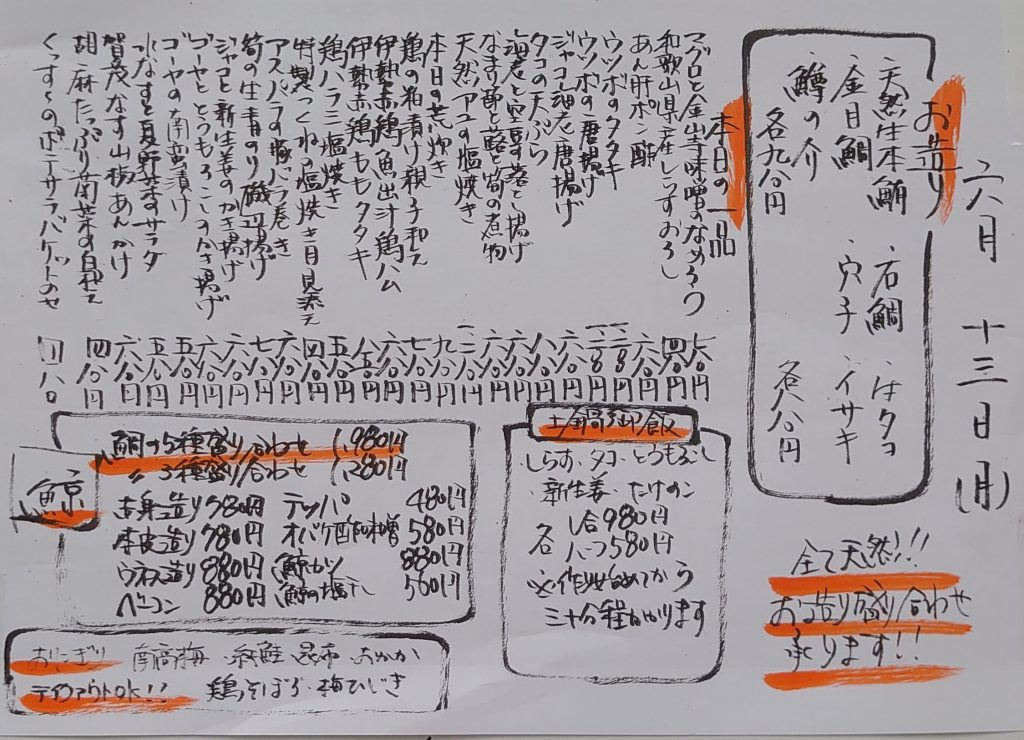 六月 十三日(月)
お造り
・天然生本鮪 ・石鯛 ・活タコ
・金目鯛 ・穴子 ・イサキ
・鱒の介
各九八〇円 各八八〇円
全て天然!!
お造り盛り合わせ
承ります!!
本日の一品
マグロと金山寺味噌のなめろう
和歌山県産生しらすおろし
あん肝ポン酢
ウツボのタタキ
ウツボの唐揚げ
ジャコ海老唐揚げ
タコの天ぷら
海老と空豆のかき揚げ
なまり節と蕗と筍の煮物
天然アユの塩焼き
本日の荒炊き
鶏の粕漬け親子和え
伊勢赤鶏 魚出汁鶏ハム
伊勢赤鶏ももタタキ
鶏ハラミ塩焼き
特製つくねの塩焼き 月見添え
アスパラの豚バラ巻き
筍の生青のり磯辺揚げ
ジャコと新生姜のかき揚げ
ゴーヤととうもろこしのかき揚げ
ゴーヤの南蛮漬け
水なすと夏野菜のサラダ
賀茂なす山椒あんかけ
胡麻たっぷり菊菜の白和え
くっすんのポテサラバゲットのせ
土鍋御飯
・しらす・タコ・とうもろこし
・新生姜・たけのこ
各 一合980円
ハーフ580円
※作り始めてから
三十分程かかります
鯨
鯨の5種盛り合わせ 1,980円
〃 3種盛り合わせ 1,280円
赤身造り 980円 テッパ 480円
本皮造り 780円 オバケ酢味噌 580円
ウネス造り 880円 鯨カツ 880円
ベーコン 880円 鯨の塩干し 560円
おにぎり 南高梅・紅鮭・昆布・おかか
テイクアウトOK!! 鶏そぼろ・梅ひじき